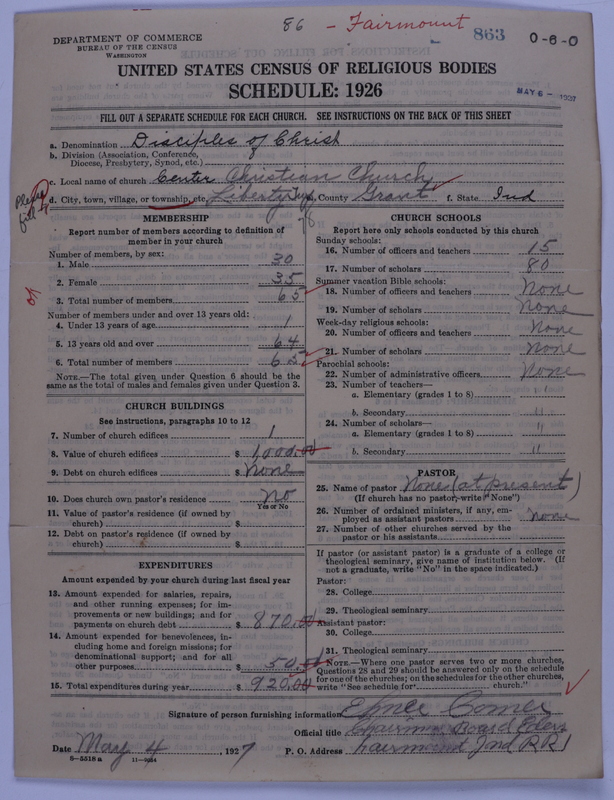 86 - Fairmount
863 0-6-0
DEPARTMENT OF COMMERCE
BUREAU OF THE CENSUS
WASHINGTON
UNITED STATES CENSUS OF RELIGIOUS BODIES
SCHEDULE: 1926
MAY 6 - 1927
FILL OUT A SEPARATE SCHEDULE FOR EACH CHURCH. SEE INSTRUCTIONS ON THE BACK OF THIS SHEET
a. Denomination Disciples of Christ
b. Division (Association, Conference, Diocese, Presbytery, Synod, etc.)
c. Local name of church Center Christian Church
d. City, town, village, or township, etc. Liberty Twp. County Grant f. State Ind
Please fill
78
MEMBERSHIP
Report number of members according to definition of member in your church
Number of members, by sex:
1. Male 30
2. Female 35
3. Total number of members 65
Number of members under and over 13 years old:
4. Under 13 years of age 1
5. 13 years old and over 64
6. Total number of members 65
NOTE.—The total given under Question 6 should be the same as the total of males and females given under Question 3.
CHURCH BUILDINGS
See instructions, paragraphs 10 to 12
7. Number of church edifices 1
8. Value of church edifices $ 1000.00
9. Debt on church edifices $ None
10. Does church own pastor's residence No
Yes or No
11. Value of pastor's residence (if owned by church) $
12. Debt on pastor's residence (if owned by church) $
EXPENDITURES
Amount expended by your church during last fiscal year
13. Amount expended for salaries, repairs, and other running expenses; for improvements or new buildings; and for payments on church debt $ 870.00
14. Amount expended for benevolences, including home and foreign missions; for denominational support; and for all other purposes $ 50.00
15. Total expenditures during year $ 920.00
CHURCH SCHOOLS
Report here only schools conducted by this church
Sunday schools:
16. Number of officers and teachers 15
17. Number of scholars 80
Summer vacation Bible schools:
18. Number of officers and teachers None
19. Number of scholars None
Week-day religious schools:
20. Number of officers and teachers None
21. Number of scholars None
Parochial schools:
22. Number of administrative officers None
23. Number of teachers—
a. Elementary (grades 1 to 8) "
b. Secondary "
24. Number of scholars—
a. Elementary (grades 1 to 8) "
b. Secondary "
PASTOR
25. Name of pastor None (at present)
(If church has no pastor, write "None")
26. Number of ordained ministers, if any, employed as assistant pastors none
27. Number of other churches served by the pastor or his assistants
If pastor (or assistant pastor) is a graduate of a college or theological seminary, give name of institution below. (If not a graduate, write "No" in the space indicated.)
Pastor:
28. College
29. Theological seminary
Assistant pastor:
30. College
31. Theological seminary
NOTE.—Where one pastor serves two or more churches, Questions 28 and 29 should be answered only on the schedule for one of the churches; on the schedules for the other churches, write "See schedule for church."
Signature of person furnishing information Comer
Official title Chairman Board Elders
Date May 4, 1927 P. O. Address Fairmount Ind RR 1
8-5518 a